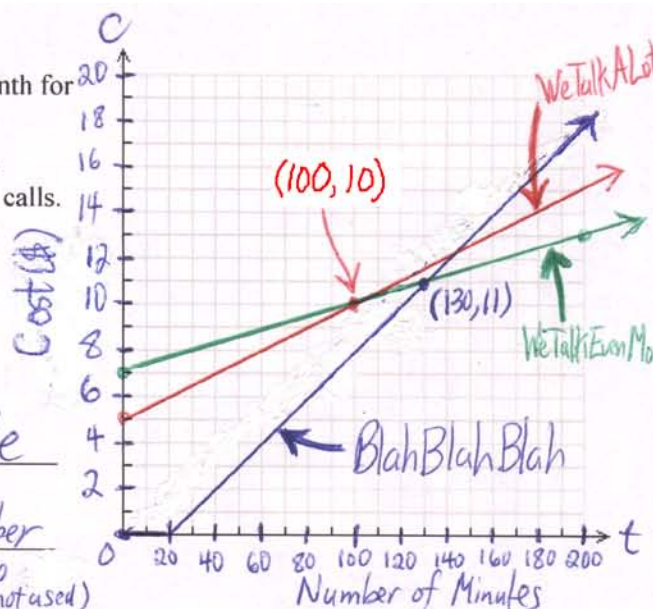 C
nth for
calls.
Cost ($)
20
18
16
14
12
10
8
6
4
2
0
WeTalkALot
(100, 10)
(130, 11)
WeTalkEvenMo
BlahBlahBlah
e
ber
not used)
20 40 60 80 100 120 140 160 180 200
t
Number of Minutes